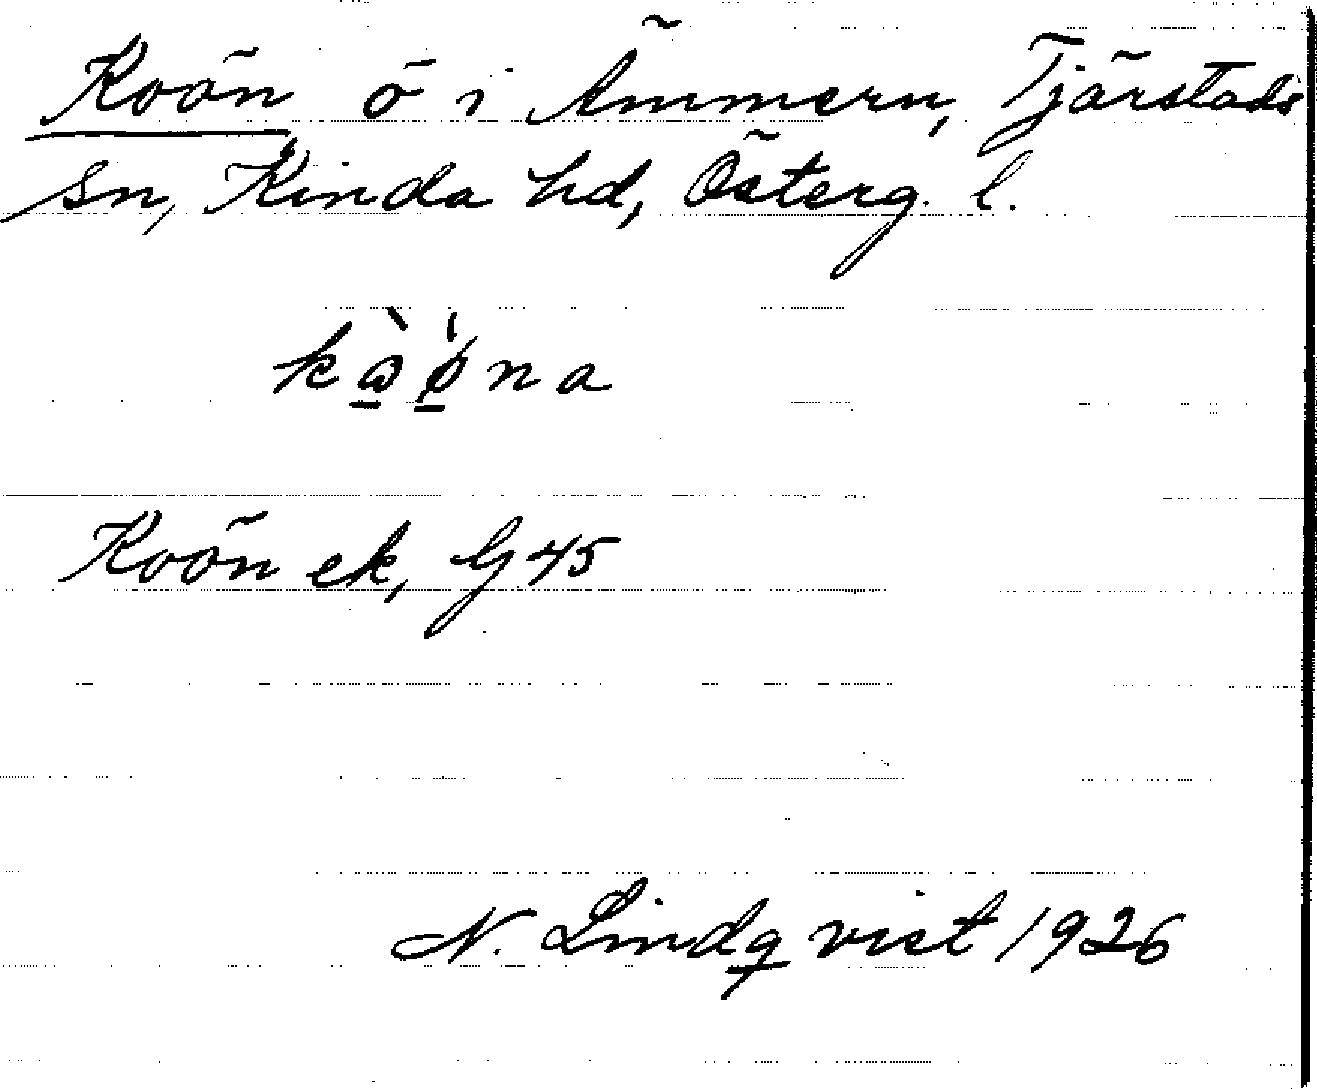 Koön ö i Ämmern, Tjärstads
sn, Kinda hd, Österg. l.
Koön ek, G 45
N. Lindqvist 1926